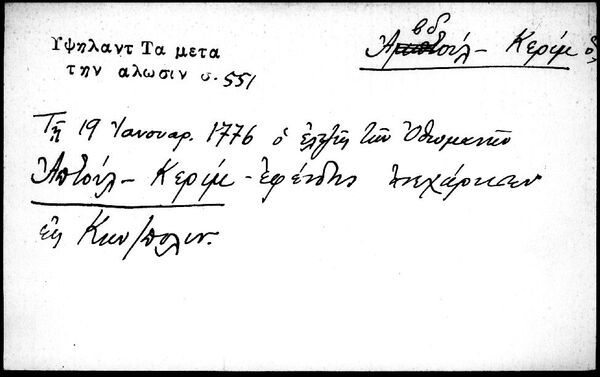 Υψηλαντ Τα μετα
την αλωσιν σ. 551
Ἀβδούλ - Κερίμ
Τῇ 19 Ἰανουαρ. 1776 ὁ ἐλτζῆς τῶν Ὀθωμανῶν
Ἀπτούλ - Κερίμ - ἐφένδης ἀνεχώρησεν
εἰς Κων/πολιν.